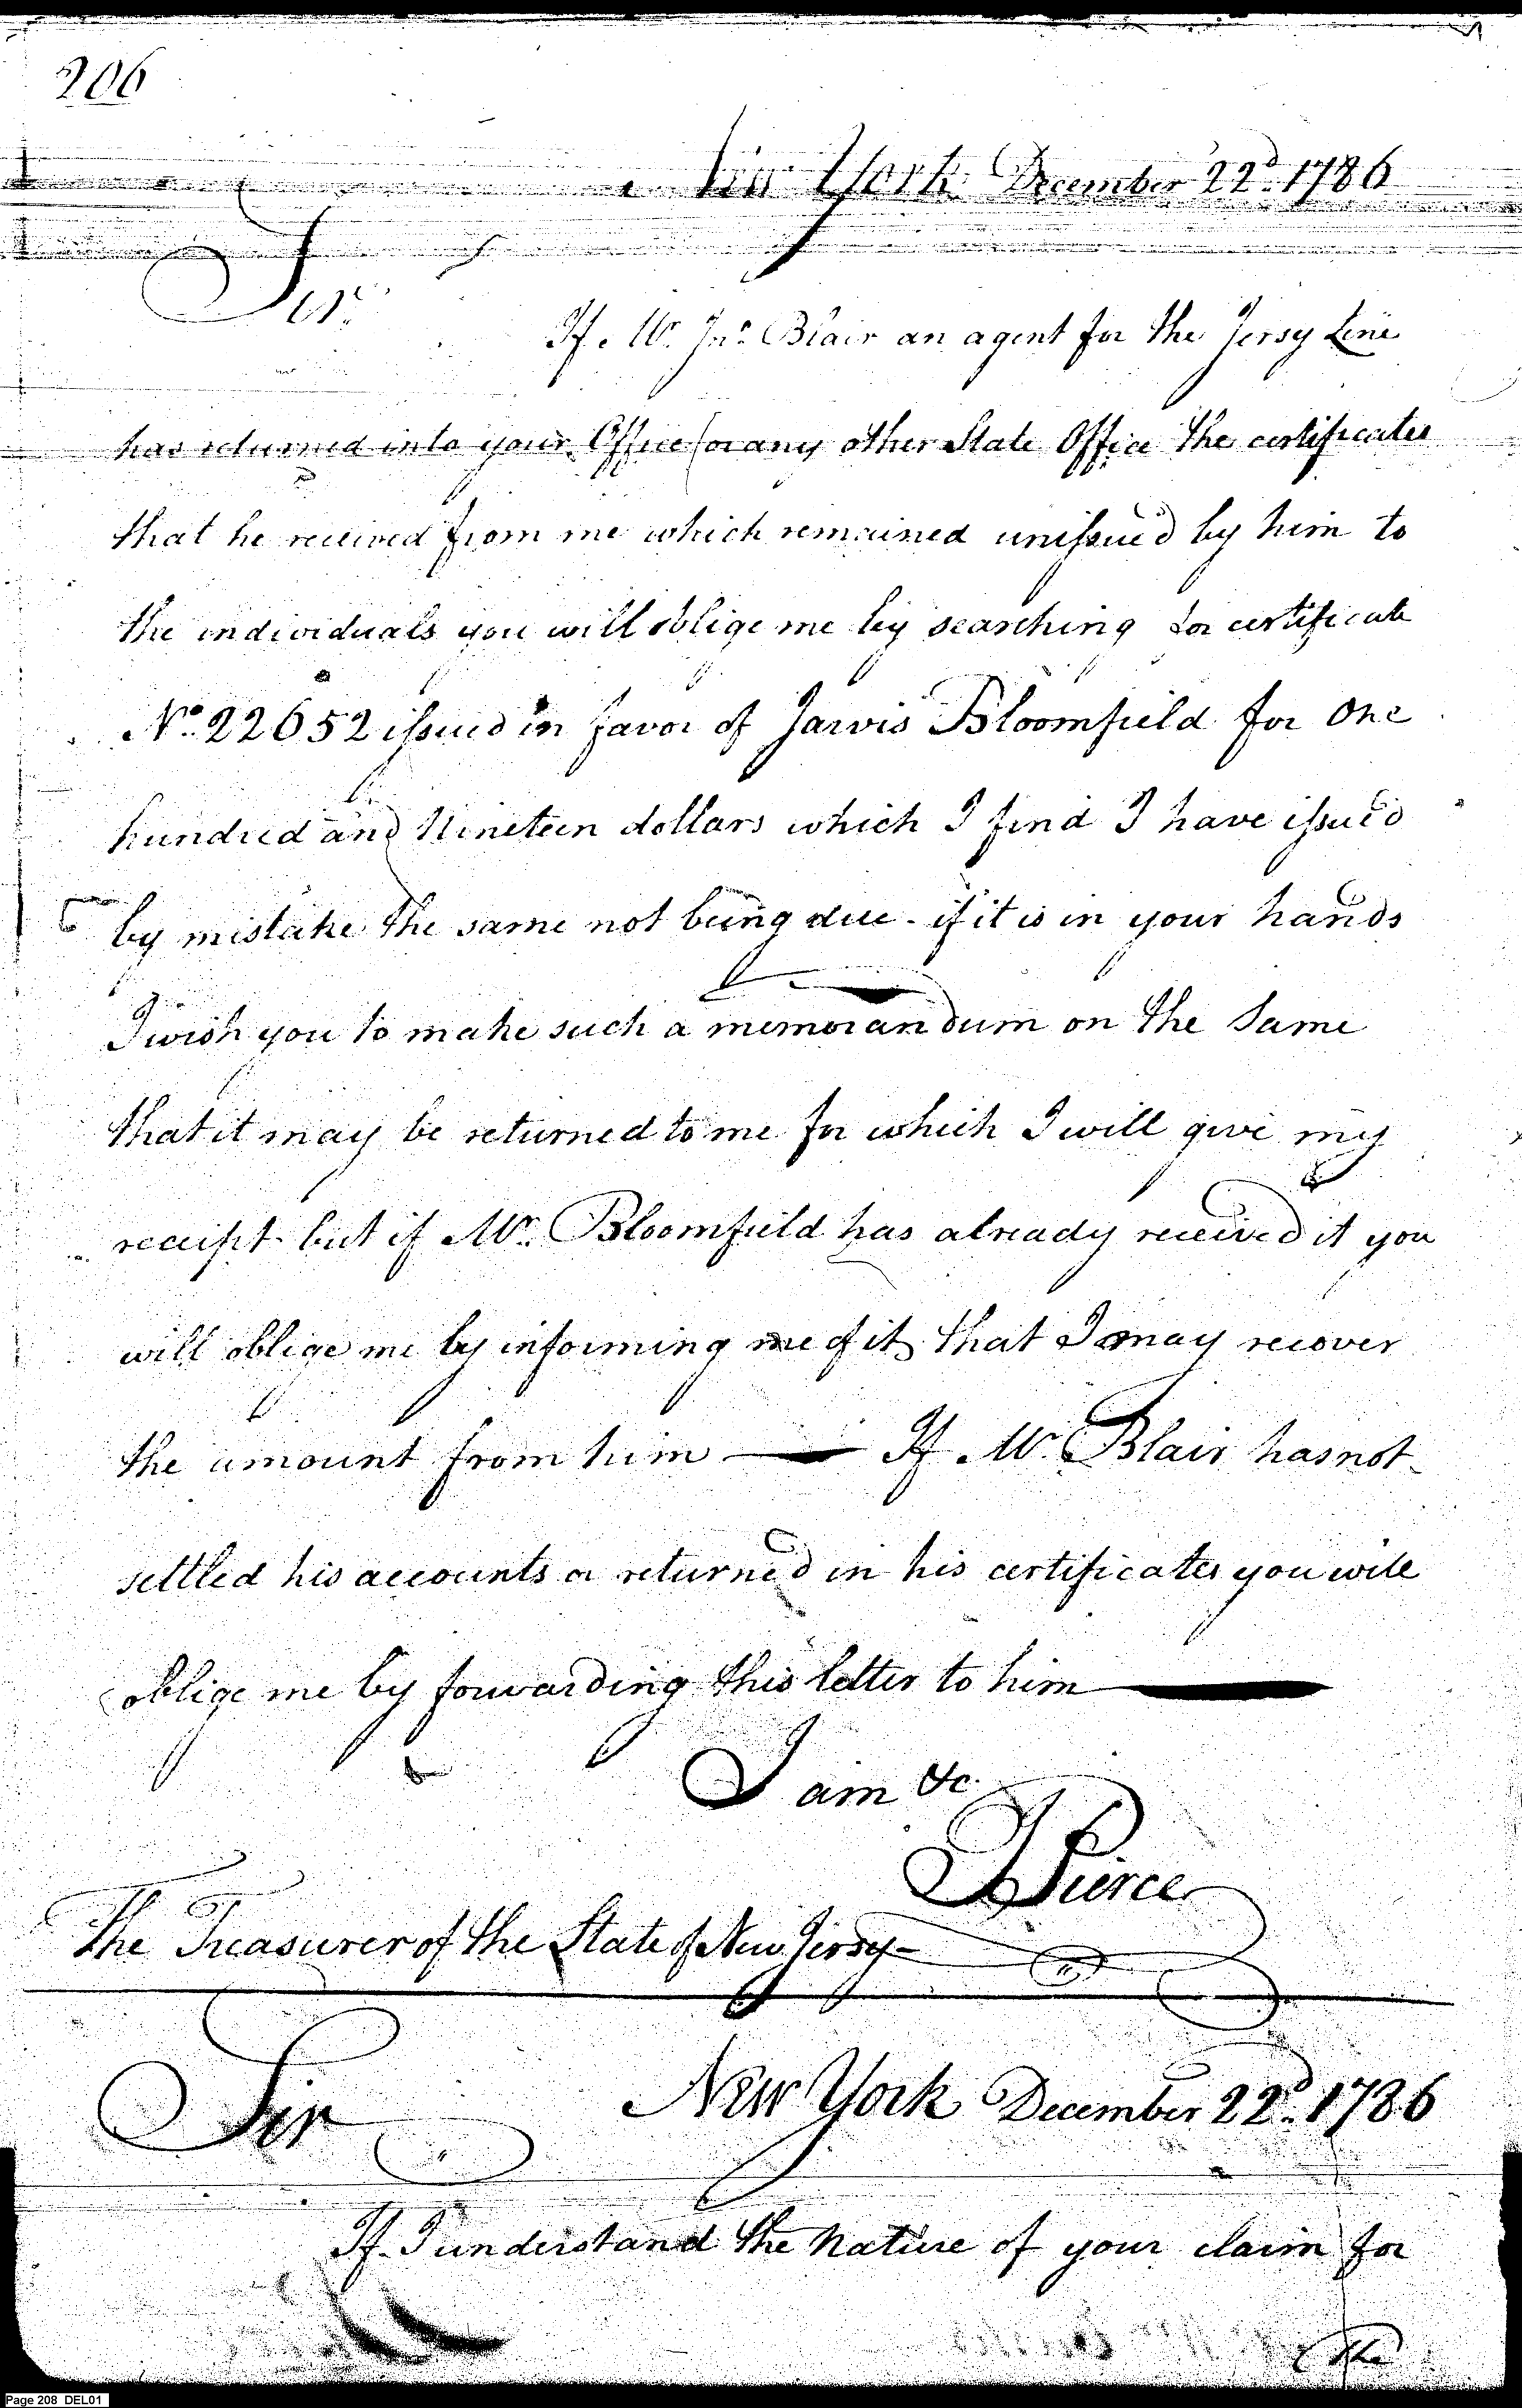 206
New York December 22d. 1786
Sir
If Mr. Jno. Blair an agent for the Jersy Line
has returned into your Office (or any other State Office the certificates
that he received from me which remained unissued by him to
the individuals you will oblige me by searching for certificate
No. 22652 issued in favor of Jarvis Bloomfield for One
hundred and Nineteen dollars which I find I have issued
by mistake the same not being due - if it is in your hands
I wish you to make such a memorandum on the Same
that it may be returned to me for which I will give my
receipt - but if Mr. Bloomfield has already received it you
will oblige me by informing me of it that I may recover
the amount from him — If Mr. Blair has not
settled his accounts or returned in his certificates you will
oblige me by forwarding this letter to him —
I am &c.
J Pierce
The Treasurer of the State of New Jersy -
New York December 22d. 1786
Sir
If I understand the Nature of your claim for
the
Page 208 DEL01